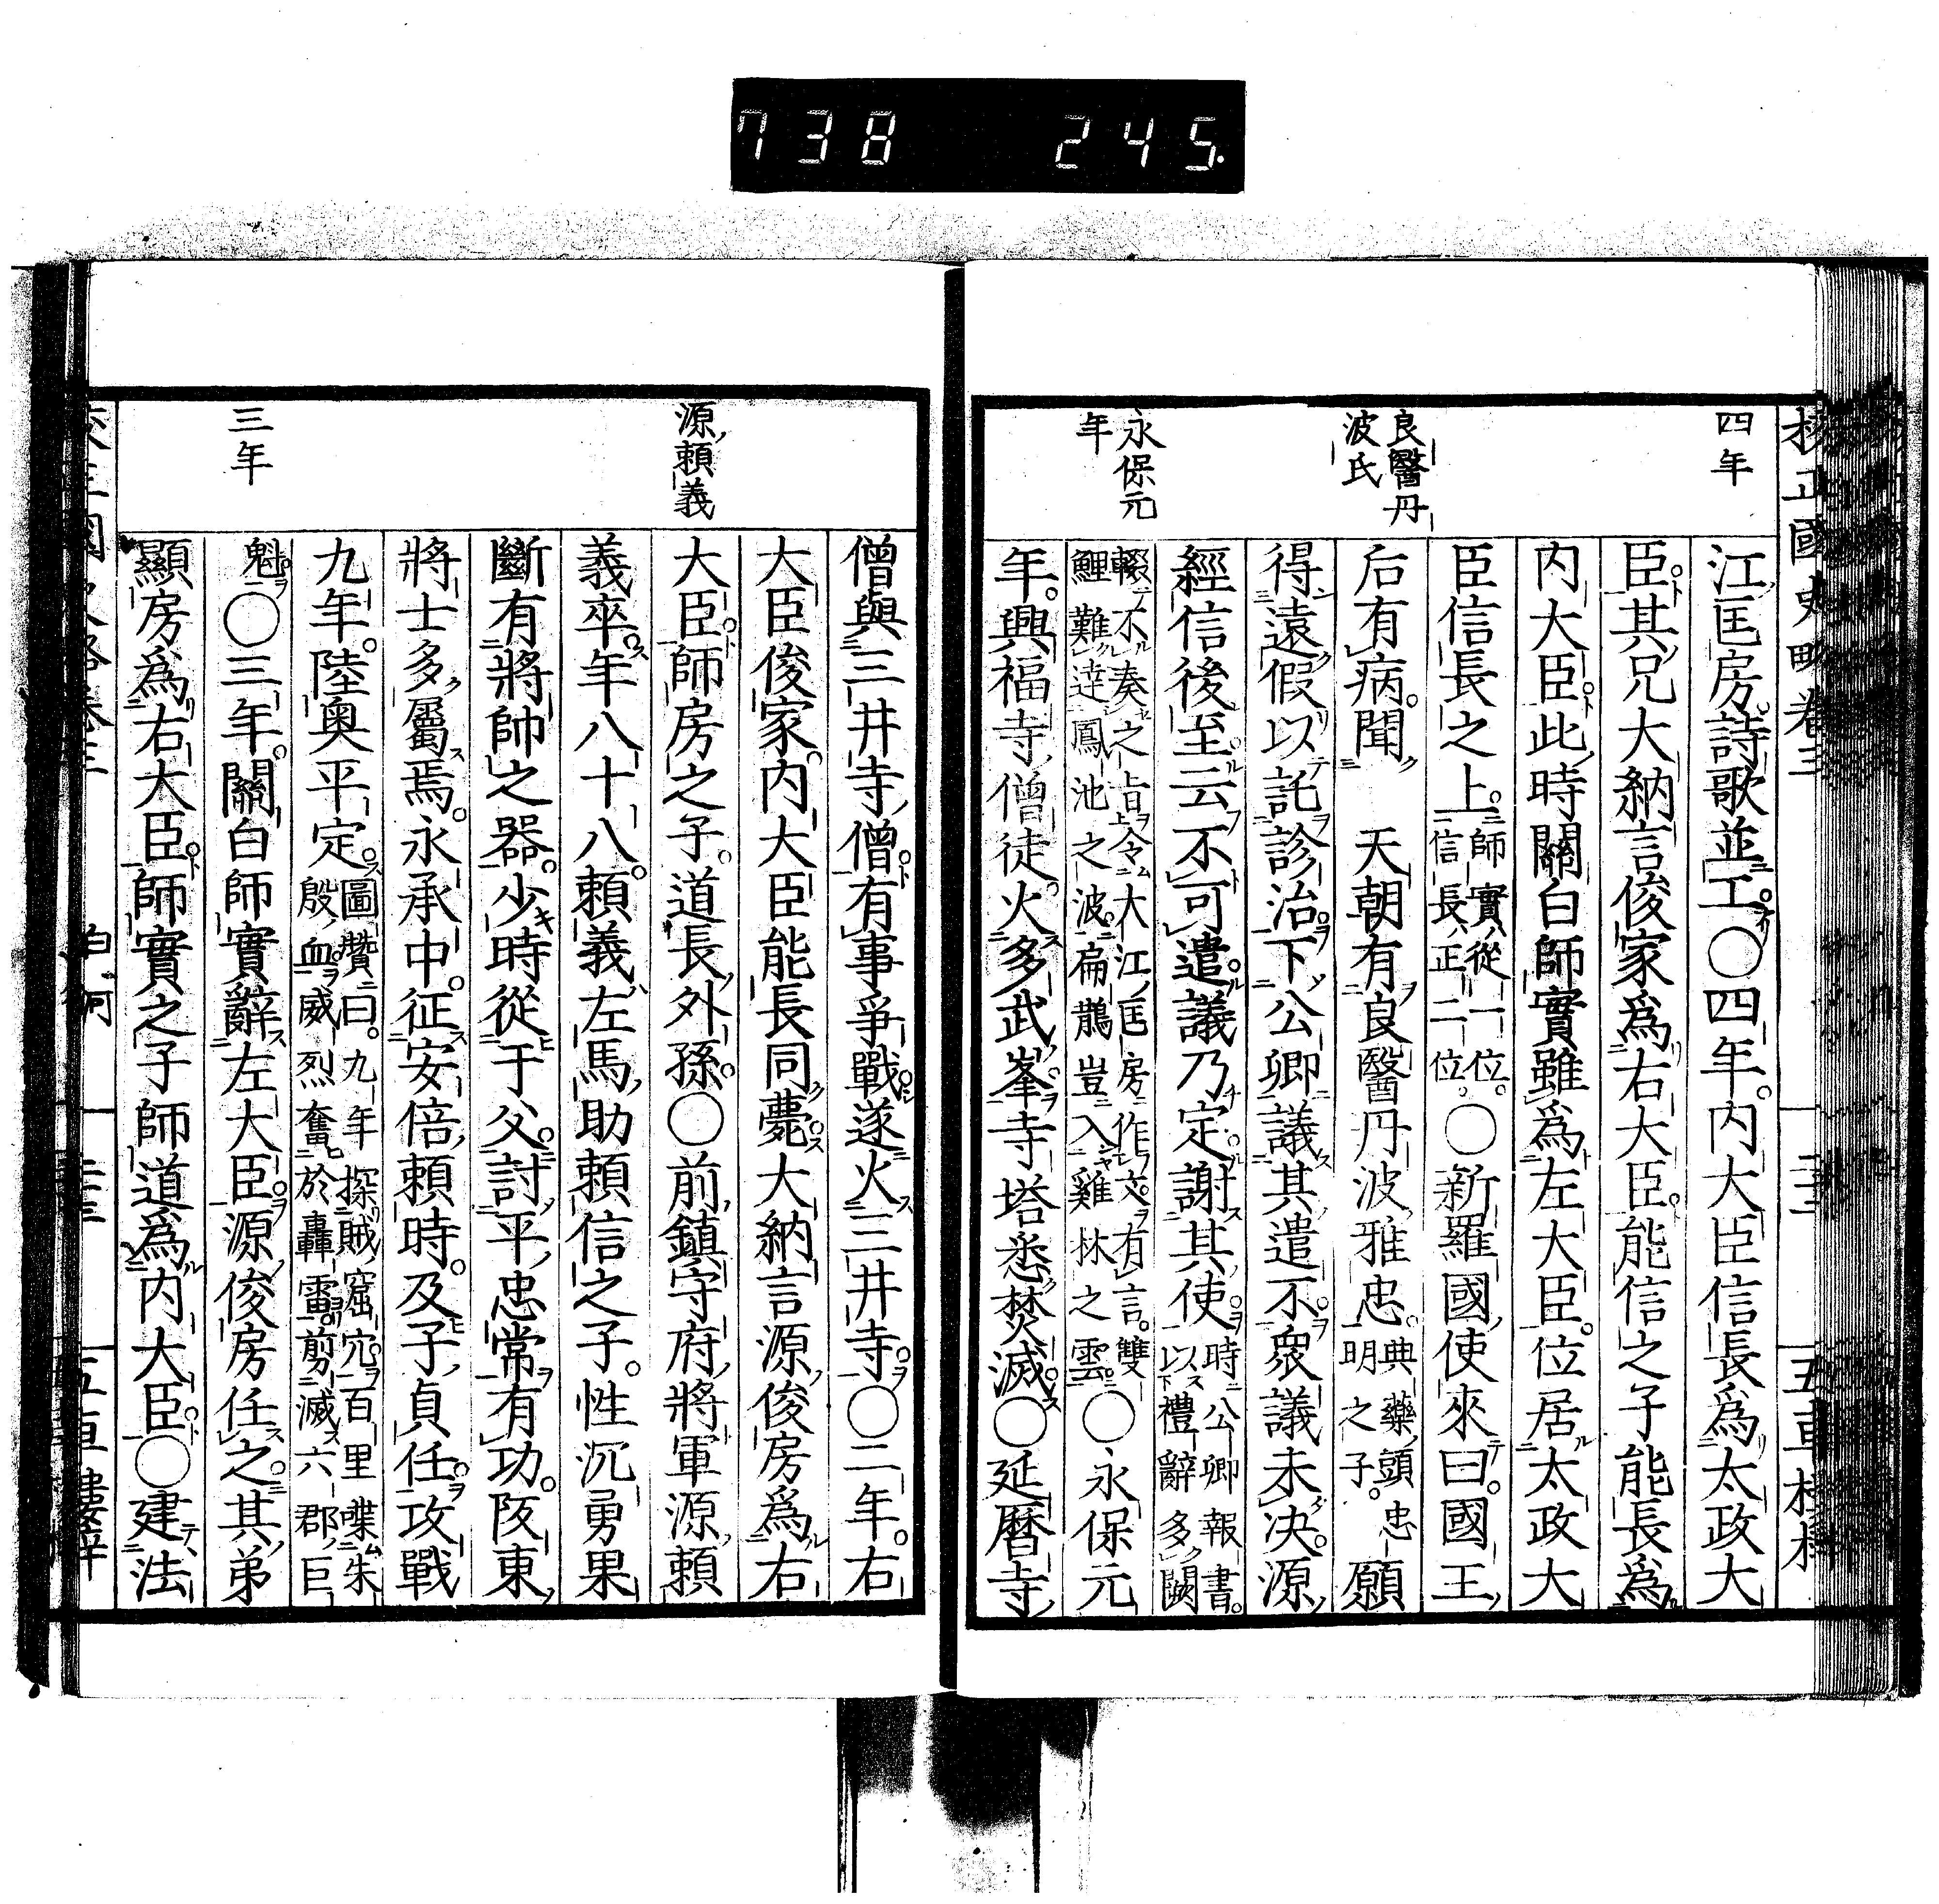 738 245.
四年
江匡房詩歌並工〇四年内大臣信長爲太政大
臣其兄大納言俊家爲右大臣能信之子能長爲
内大臣此時關白師實雖爲左大臣位居太政大
臣信長之上師實從一位信長正二位〇新羅國使來曰國王
良醫丹波氏
后有病聞天朝有良醫丹波雅忠典藥頭忠明之子願
得遠假以託診治下公卿議其遣不衆議未決源
經信後至云不可遣議乃定謝其使時公卿報書以禮辭多闕
永保元年
輟不奏之上旨令大江匡房作文有言雙鯉難達鳳池之波扁鵲豈入雞林之雲〇永保元
年興福寺僧徒火多武峯寺塔悉焚滅〇延曆寺
僧與三井寺僧有事爭戰遂火三井寺〇二年右
大臣俊家内大臣能長同薨大納言源俊房爲右
源頼義
大臣師房之子道長外孫〇前鎮守府將軍源頼
義卒年八十八頼義左馬助頼信之子性沉勇果
斷有將帥之器少時從于父討平忠常有功阪東
將士多屬焉永承中征安倍頼時及子貞任攻戰
九年陸奥平定圖贊曰九年探賊窟穴百里喋朱殷血威烈奮於轟雷剪滅六郡巨
三年
魁〇三年關白師實辭左大臣源俊房任之其弟
顯房爲右大臣師實之子師道爲内大臣〇建法